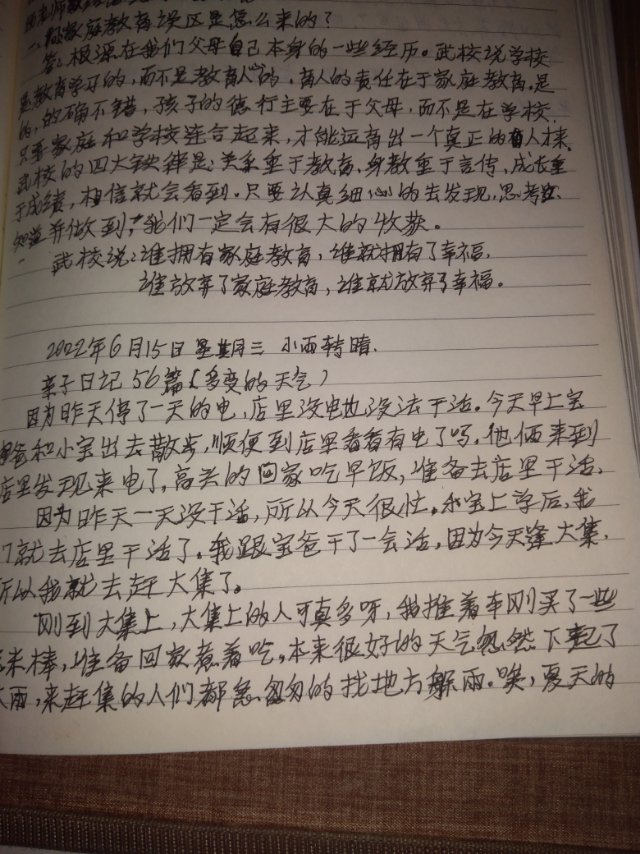 一、你家庭教育误区是怎么来的？
答：根源在我们父母自己本身的一些经历。武校说学校
是教育学习的，而不是教育人的。育人的责任在于家庭教育。是
的，的确不错，孩子的德行主要在于父母，而不是在学校。
只要家庭和学校连合起来，才能运育出一个真正的育人才。
武校的四大铁律是：关系重于教育，身教重于言传，成长重
于成绩，相信就会看到。只要认真细心的去发现，思考
知道并做到，我们一定会有很大的收获。
武校说：谁拥有家庭教育，谁就拥有了幸福，
谁放弃了家庭教育，谁就放弃了幸福。
2022年6月15日 星期三 小雨转晴.
亲子日记56篇（多变的天气）
因为昨天停了一天的电，店里没电也没法干活。今天早上宝
爸和小宝出去散步，顺便到店里看看有电了吗，他俩来到
店里发现来电了，高兴的回家吃早饭，准备去店里干活。
因为昨天一天没干活，所以今天很忙。小宝上学后，我
们就去店里干活了。我跟宝爸干了一会活，因为今天逢大集，
所以我就去赶大集了。
刚到大集上，大集上的人可真多呀，我推着车刚买了一些
玉米棒，准备回家煮着吃，本来很好的天气忽然下起了
大雨，来赶集的人们都急匆匆的找地方躲雨。唉，夏天的